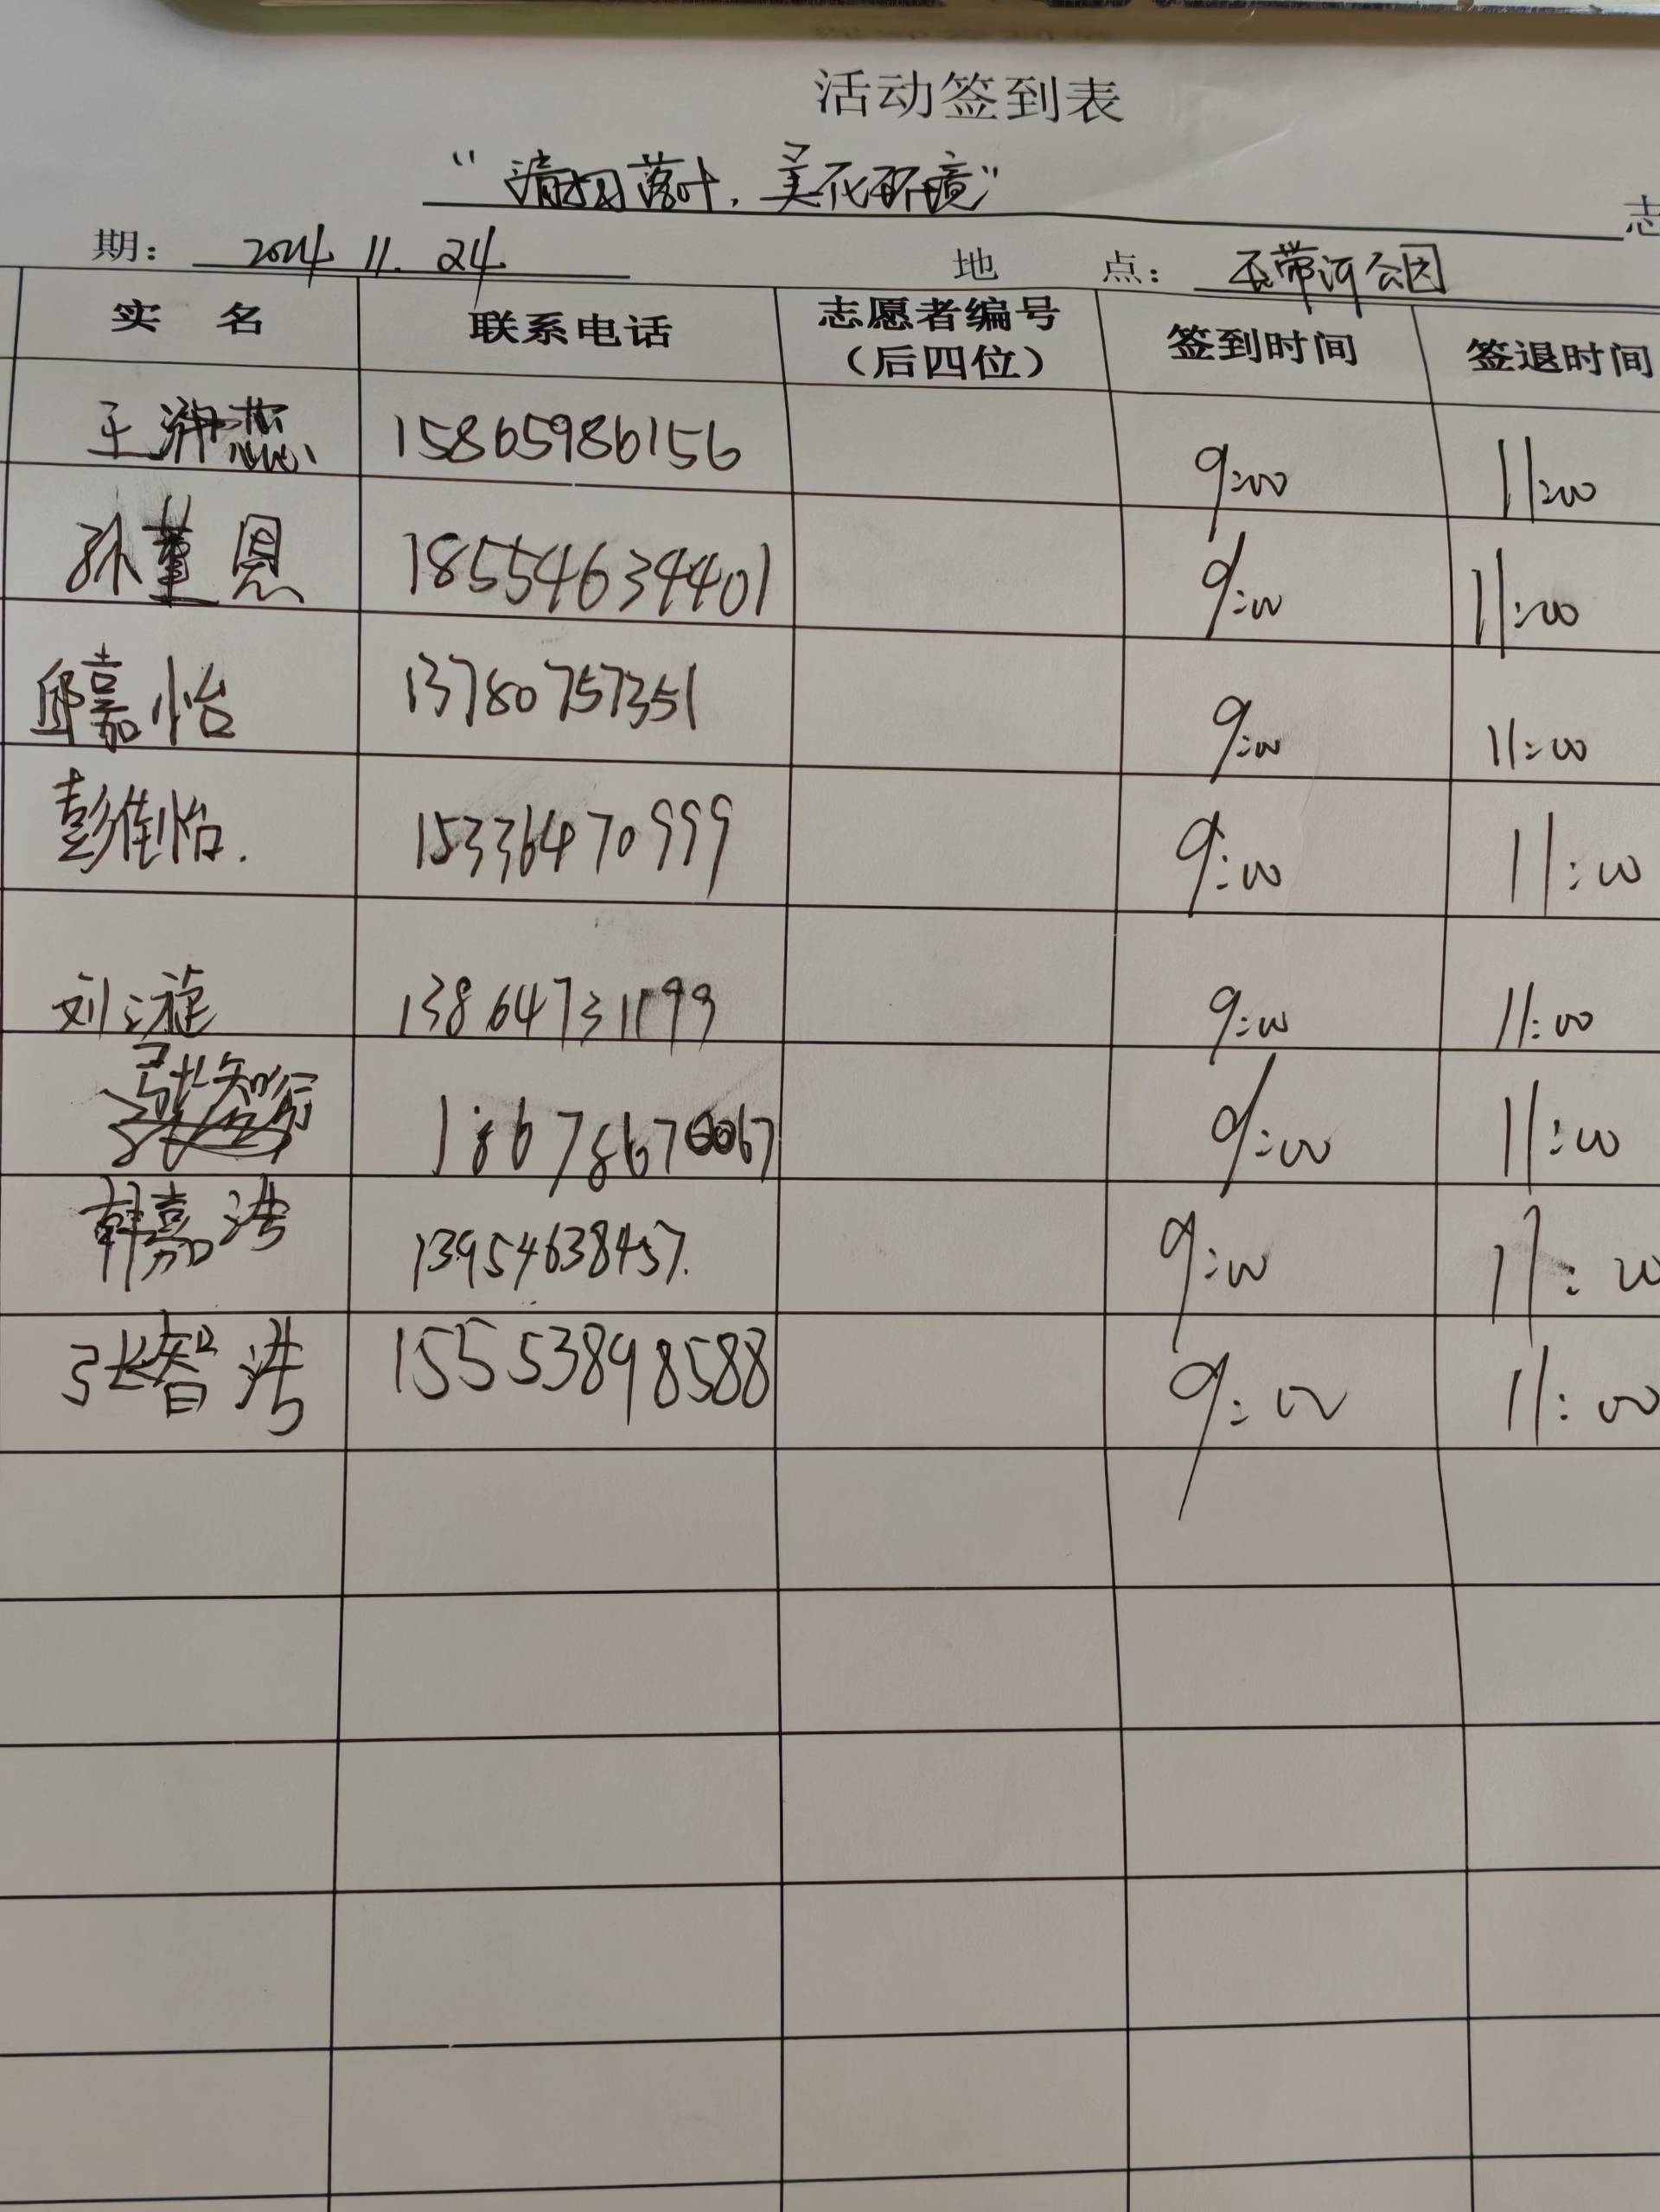 活动签到表
“清扫落叶,美化环境”
志
期: 2024 11. 24 地 点: 玉带河公园
实 名 联系电话 志愿者编号（后四位） 签到时间 签退时间
王 蕊 15865986156 9:00 11:00
孙堇恩 18554634401 9:00 11:00
邱嘉怡 13780757351 9:00 11:00
彭佳怡. 15336470999 9:00 11:00
刘漩 13864731199 9:00 11:00
张智 18678670067 9:00 11:00
韩嘉浩 13954638457. 9:00 11:00
张智浩 15553898588 9:00 11:00